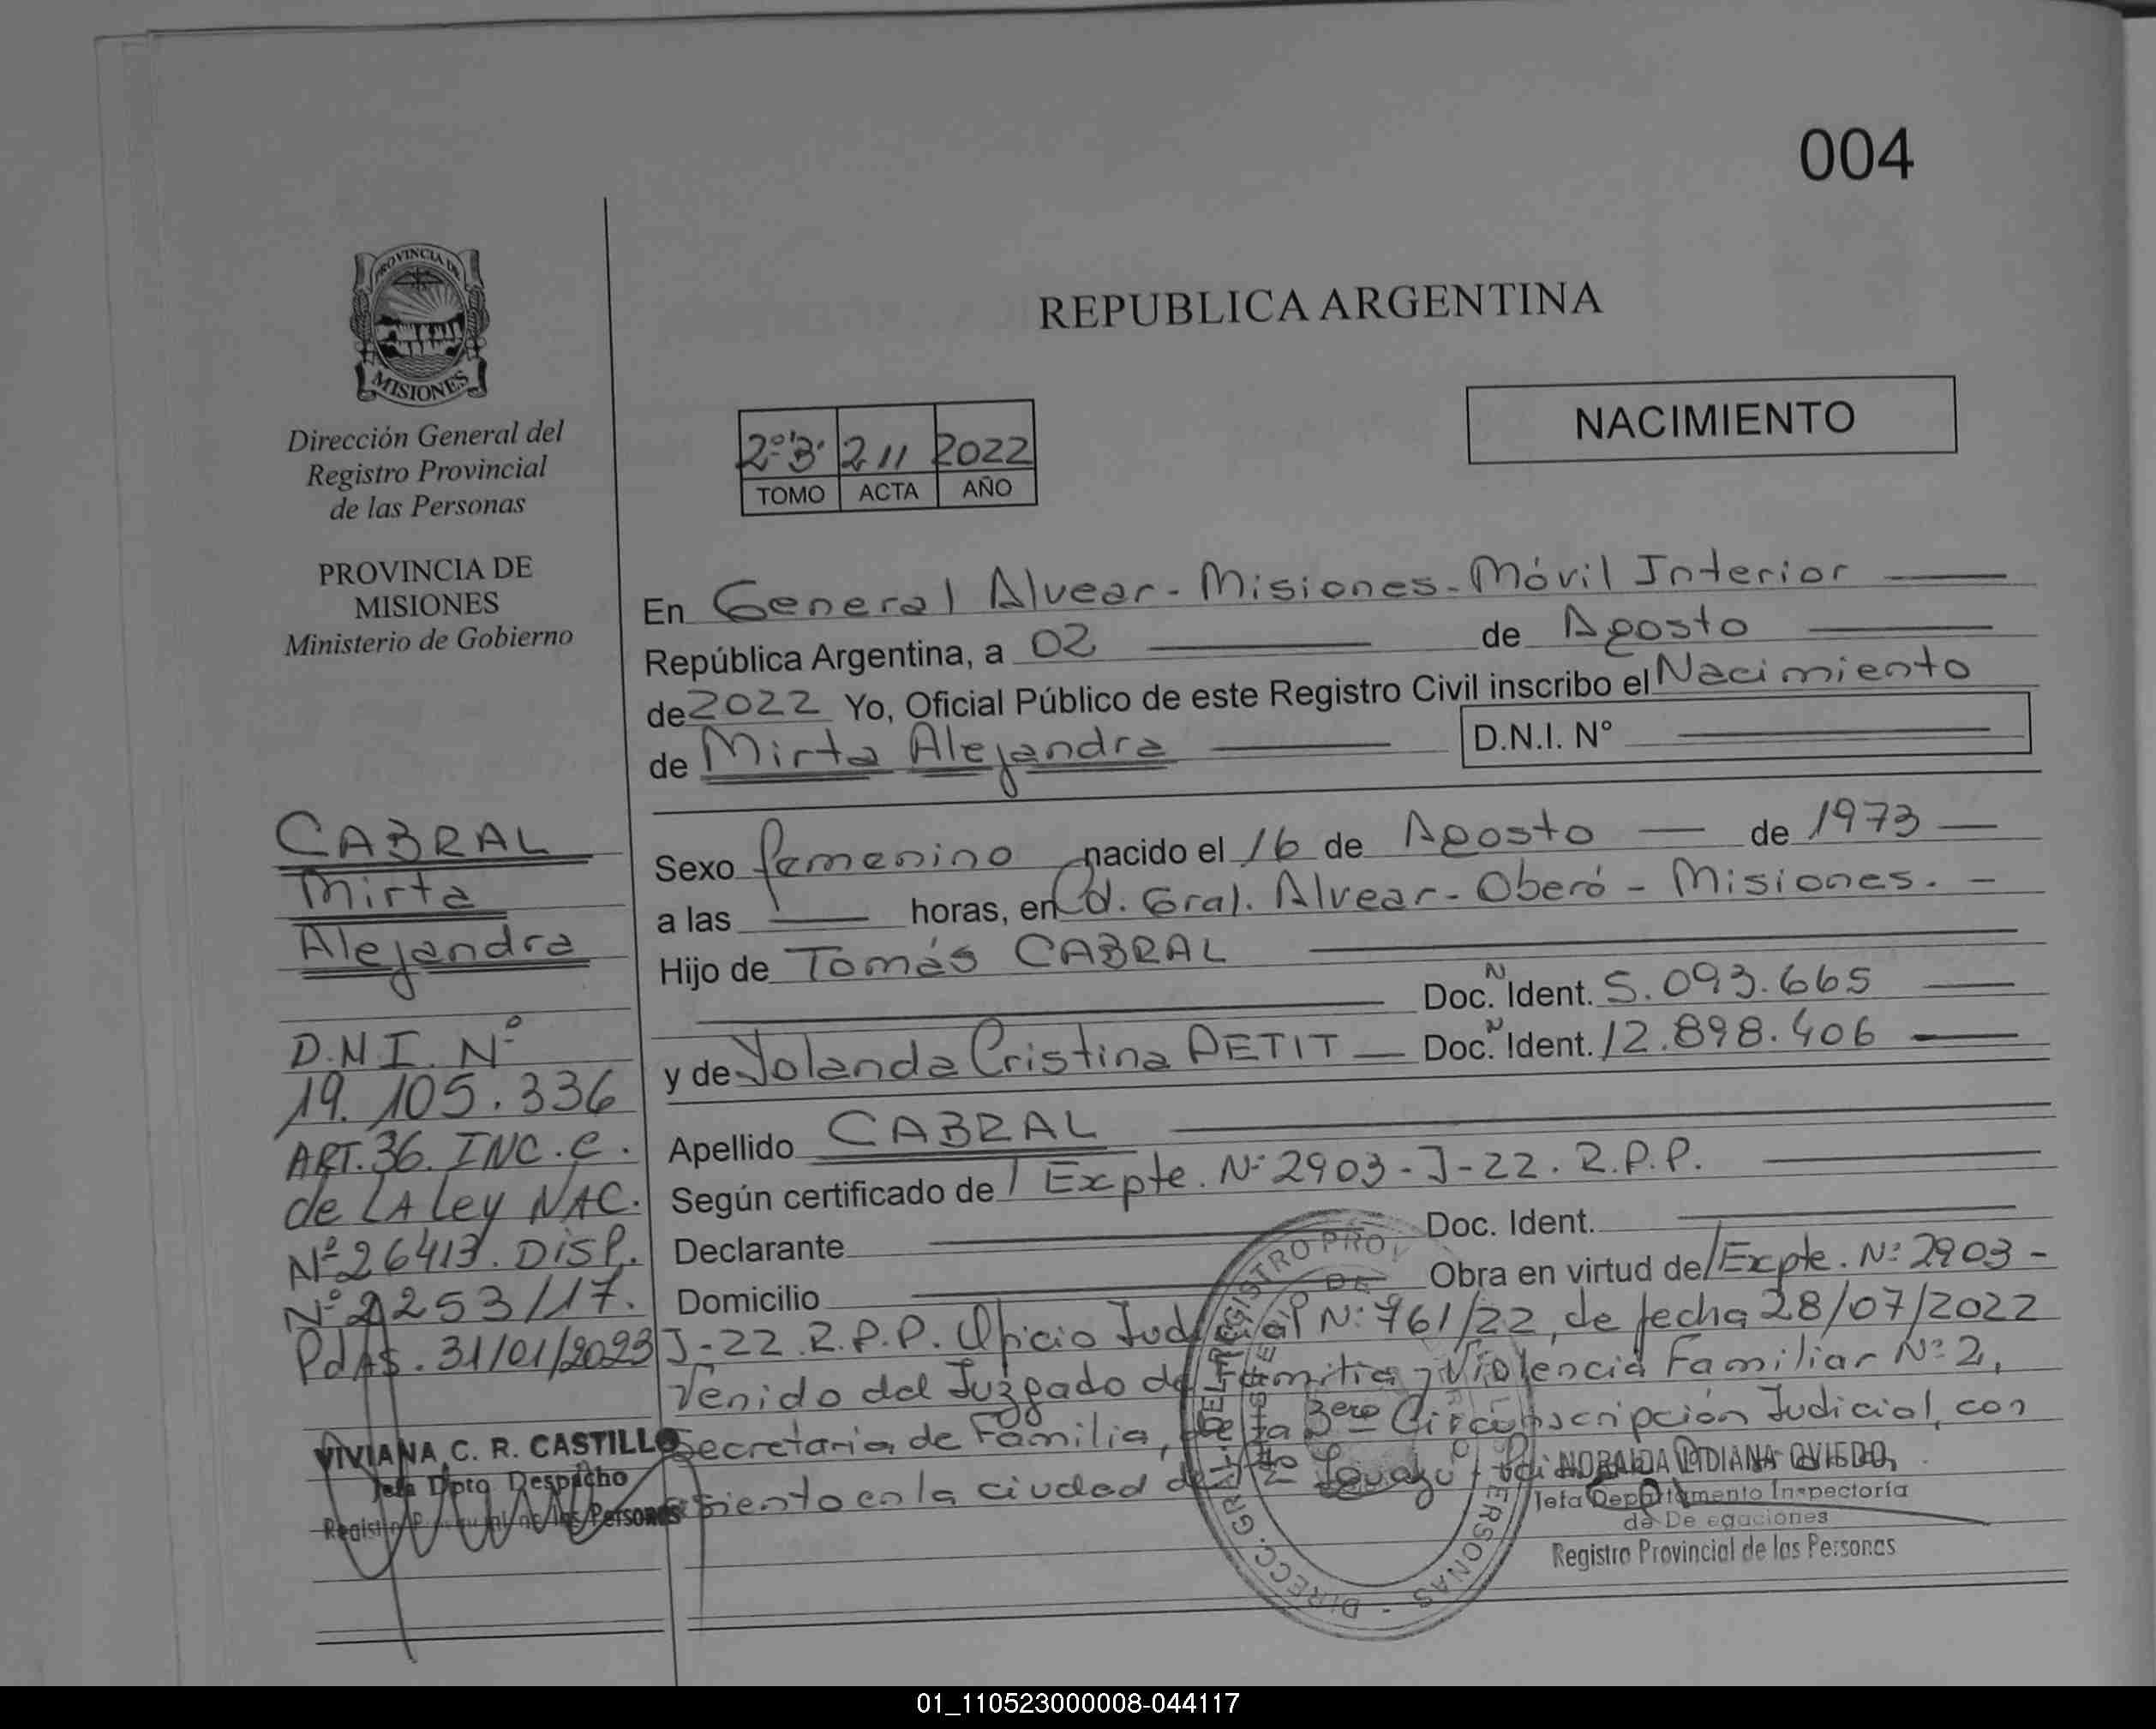 004
PROVINCIA DE
MISIONES
Dirección General del
Registro Provincial
de las Personas
PROVINCIA DE
MISIONES
Ministerio de Gobierno
CABRAL
Mirta
Alejandra
D.N.I. Nº
19.105.336
ART.36. INC.c.
de LA Ley NAC.
Nº 26413. DISP.
Nº 2253/17.
PdAS. 31/01/2023
VIVIANA C. R. CASTILLO
Jefa Dpto Despacho
las Personas
REPUBLICA ARGENTINA
NACIMIENTO
2º"B" 211 2022
TOMO ACTA AÑO
En General Alvear - Misiones - Móvil Interior
República Argentina, a 02 de Agosto
de 2022 Yo, Oficial Público de este Registro Civil inscribo el Nacimiento
de Mirta Alejandra D.N.I. Nº
Sexo femenino nacido el 16 de Agosto de 1973
a las horas, en Cd. Gral. Alvear - Oberá - Misiones.
Hijo de Tomás CABRAL
Doc. N Ident. 5.093.665
y de Yolanda Cristina PETIT Doc. N Ident. 12.898.406
Apellido CABRAL
Según certificado de / Expte. Nº 2903-J-22. R.P.P.
Declarante Doc. Ident.
Domicilio Obra en virtud de/Expte. Nº 2903-
J-22. R.P.P. Oficio Judicial Nº 761/22, de fecha 28/07/2022
Venido del Juzgado de Familia y Violencia Familiar Nº 2,
Secretaria de Familia, de la 3era Circunscripción Judicial, con
asiento en la ciudad de
NORAIDA LIDIANA OVIEDO
Jefa Departamento Inspectoría
de De egaciones
Registro Provincial de las Personas
01_110523000008-044117